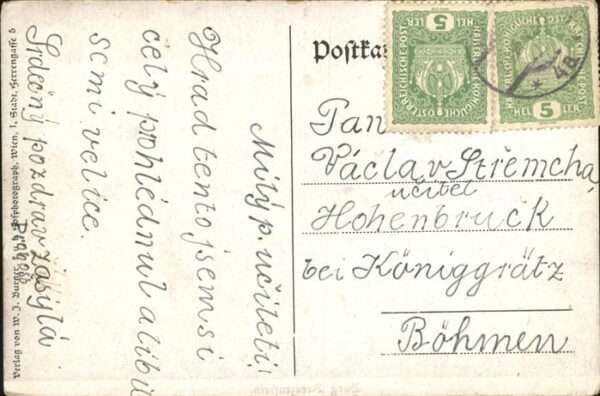 Postka
Milý p. učiteli!
Hrad tento jsem si
celý pohlédnul a libil
se mi velice.
Srdečný pozdrav zasýlá
Pan
Václav Střemcha,
učitel
Hohenbruck
bei Königgrätz
Böhmen
5
HELLER
KAISERLICHE KÖNIGLICHE ÖSTERREICHISCHE POST
5
4a
Verlag von W. J. Burger, k. u. k. Hofphotograph, Wien, I. Stadt, Herrengasse 6